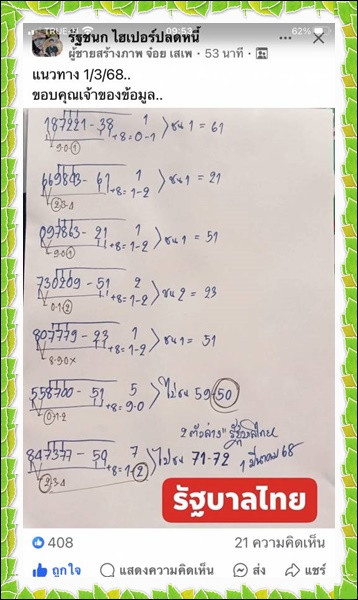 TRUE-H
09:53
62%
รัฐชนก ไฮเปอร์ปลดหนี้
ผู้ชายสร้างภาพ จ๋อย เสเพ · 53 นาที ·
แนวทาง 1/3/68..
ขอบคุณเจ้าของข้อมูล..
187221-38 1
+8=0-1 ชน 1 = 61
9·0·1
669843-61 1
+8=1-2 ชน 1 = 21
2·3·4
097863-21 1
+8=1-2 ชน 1 = 51
9·0·1
730209-51 2
+8=1-2 ชน 2 = 23
0·1·2
807779-23 1
+8=1-2 ชน 1 = 51
8·9·0x
558700-51 5
+8=9-0 ไม่ชน 59-50
0·1·2
2 ตัวล่าง รัฐบาลไทย
847377-59 7
+8=1-2 ไม่ชน 71-72 1 มีนาคม 68
2·3·4
รัฐบาลไทย
408
21 ความคิดเห็น
ถูกใจ
แสดงความคิดเห็น
ส่ง
แชร์